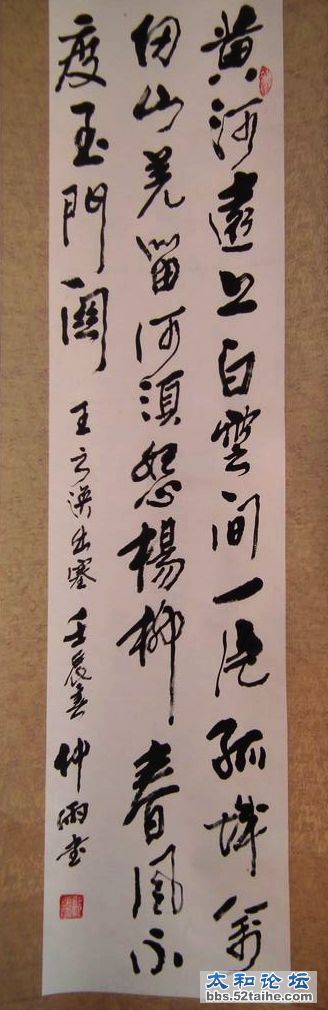 黄河遠上白雲间一片孤城萬
仞山羌笛何須怨楊柳春風不
度玉門關 王之渙出塞 壬辰春 仲雨書
太和论坛
bbs.52taihe.com